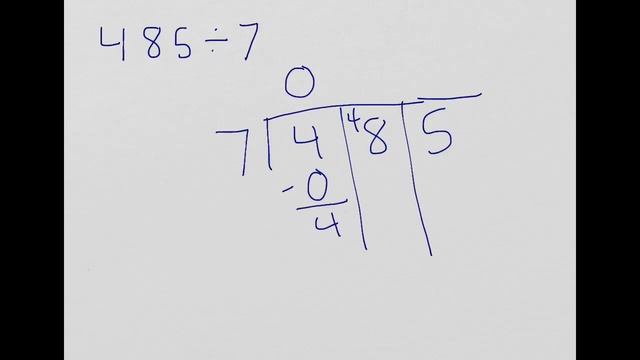 485÷7
0
7 4 4 8 5
-0
4